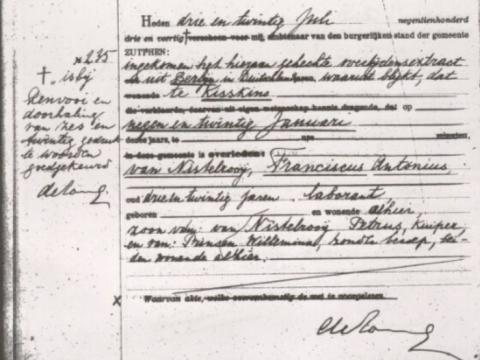 Heden drie en twintig Juli negentienhonderd
drie en veertig † verscheen voor mij, ambtenaar van den burgerlijken stand der gemeente
ZUTPHEN:
ingekomen het hieraan gehechte overlijdensextract
uit Berlin in Duitschland, waaruit blijkt, dat
wonende te Kisskino
die verklaarde, daarvan uit eigen wetenschap kennis dragende, dat op
negen en twintig Januari
dezes jaars, te ure minuten,
in deze gemeente is overleden:
van Nistelrooij, Franciscus Antonius,
oud drie en twintig jaren laborant
geboren en wonende alhier,
zoon van: van Nistelrooij Petrus, kuiper,
en van: Prinsen Willemina, zonder beroep, bei-
den wonende alhier.
Waarvan akte, welke overeenkomstig de wet is voorgelezen.
No 235
†, is bij
Renvooi en
doorhaling
van zes en
twintig gedruk-
te woorden
goedgekeurd